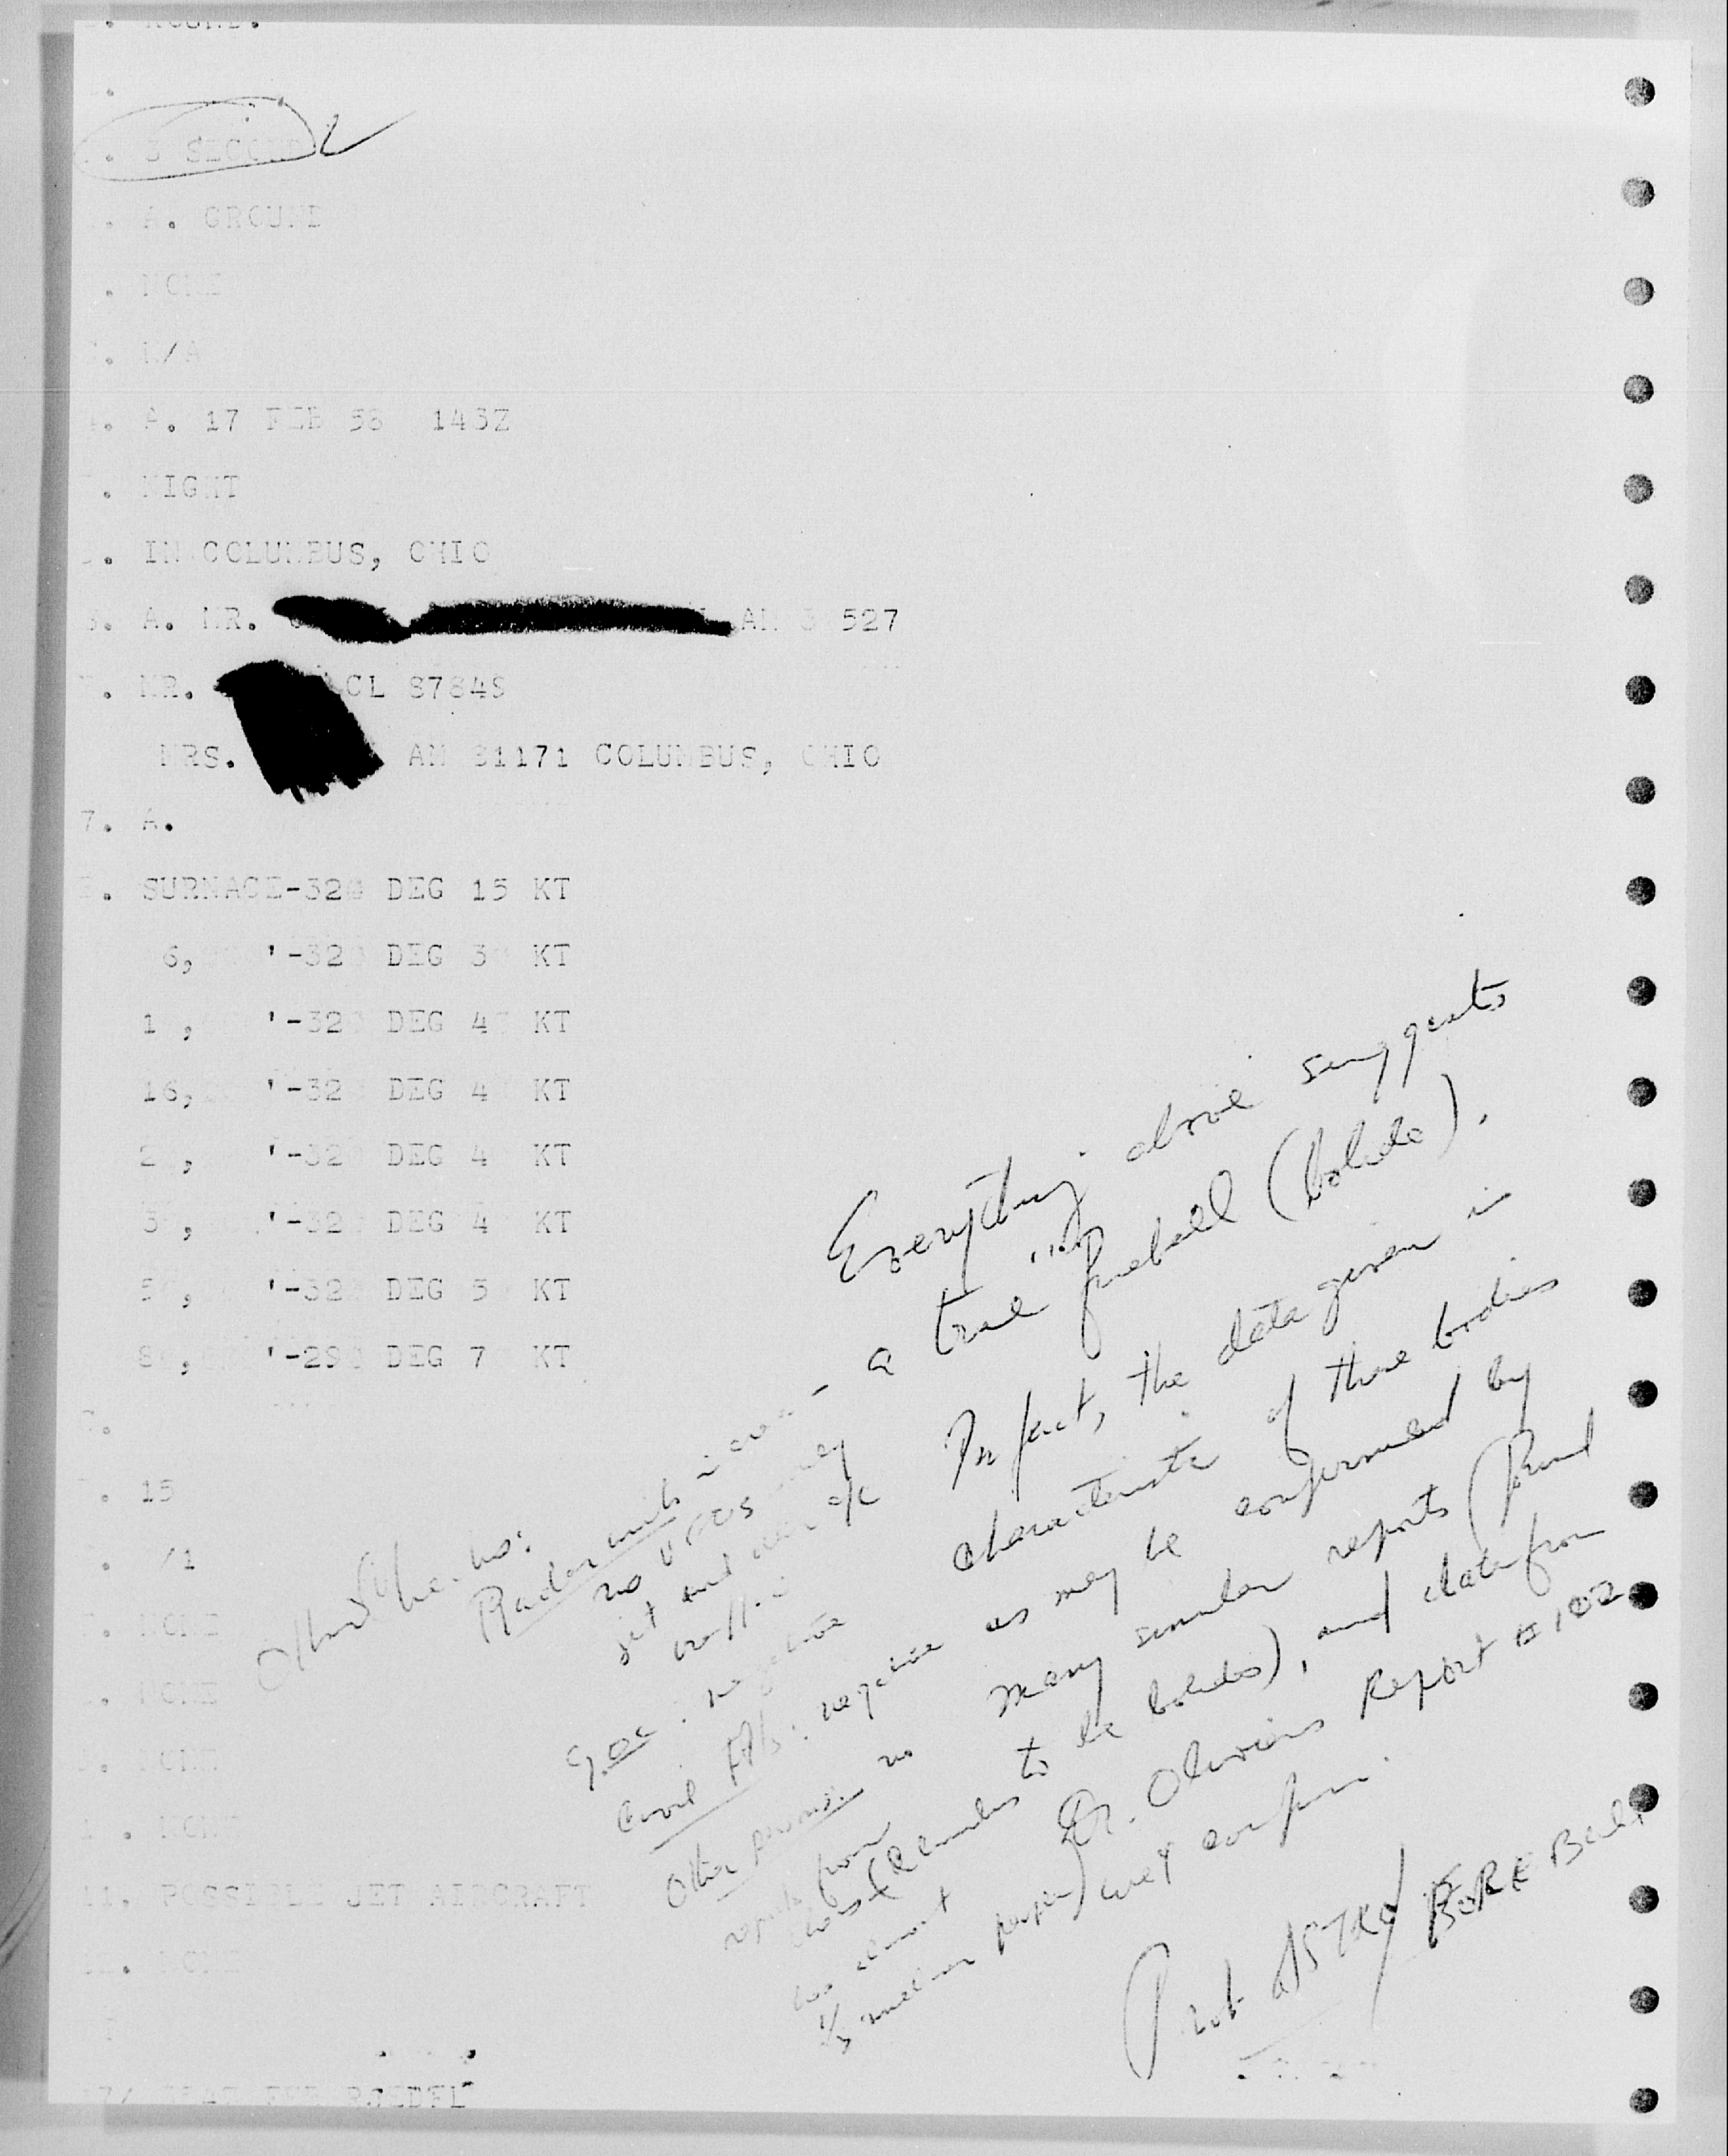 . ROUND.
.
. 3 SECOND
. A. GROUND
. NONE
. N/A
. A. 17 FEB 58 143Z
. NIGHT
. IN COLUMBUS, OHIO
. A. MR. AM 3 527
. MR. CL 87848
MRS. AM 31171 COLUMBUS, OHIO
7. A.
. SURNACE-320 DEG 15 KT
6, '-32 DEG 3 KT
1 , '-32 DEG 4 KT
16, '-32 DEG 4 KT
2 , '-32 DEG 4 KT
3 , '-32 DEG 4 KT
5 , '-32 DEG 5 KT
8 , '-29 DEG 7 KT
.
. 15
. /1
. NONE
. NONE
. NONE
1 . NONE
11. POSSIBLE JET AIRCRAFT
12. NONE
17/ FEB RJEDFL
Everything above suggests
a true fireball (bolide).
In fact, the data given in
characteristic of these bodies
as may be confirmed by
many similar reports (found
to be bolides), and data from
Dr. Oliviers Report #102
will confirm.
Prob ASTRO/
Other
Radar units in area -
no UFOS only
jet and other a/c
traffic
GOC: negative
Civil negative
Other persons: no
reports from
(Columbus
has almost
1/3 million people)